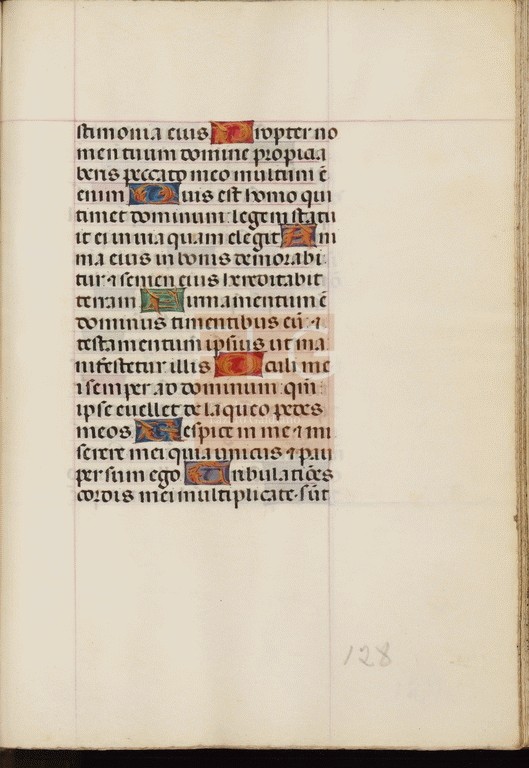 stimonia eius Propter no
men tuum domine propicia
beris peccato meo multum ē
enim Quis est homo qui
timet dominum legem statu
it ei in via quam elegit An
ma eius in bonis demorabi
tur ⁊ semen eius hereditabit
terram Firmamentum ē
dominus timentibus eū ⁊
testamentum ipsius ut ma
nifestetur illis Oculi me
i semper ad dominum qm̄
ipse euellet de laqueo pedes
meos Respice in me ⁊ mi
serere mei quia unicus ⁊ pau
per sum ego Tribulatiōes
cordis mei multiplicate sūt
128